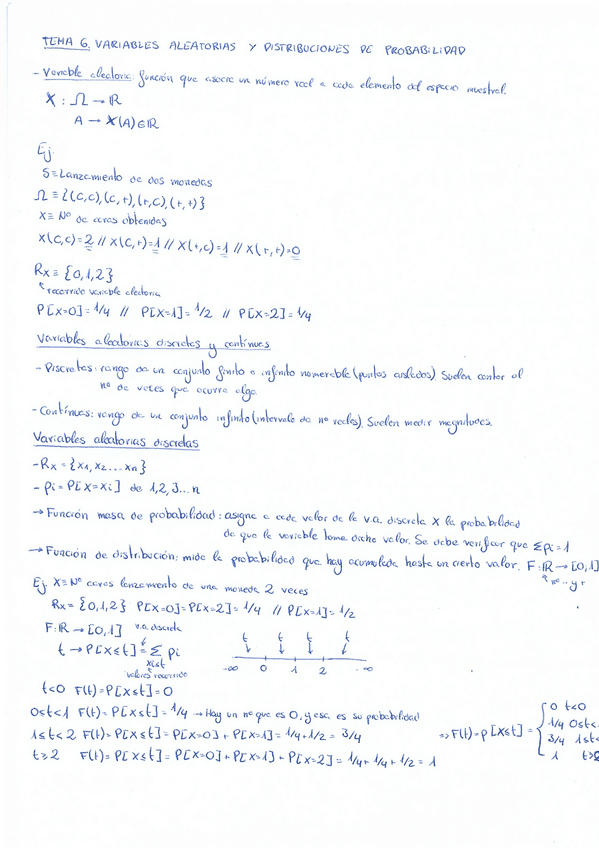 TEMA 6. VARIABLES ALEATORIAS Y DISTRIBUCIONES DE PROBABILIDAD
- Variable aleatoria: función que asocia un número real a cada elemento del espacio muestral.
X : Ω → ℝ
A → X(A) ∈ ℝ
Ej.
S ≡ Lanzamiento de dos monedas
Ω ≡ {(C,C), (C,+), (+,C), (+,+)}
X ≡ Nº de caras obtenidas
X(C,C) = 2 // X(C,+) = 1 // X(+,C) = 1 // X(+,+) = 0
Rx ≡ {0,1,2}
recorrido variable aleatoria
P[X=0] = 1/4 // P[X=1] = 1/2 // P[X=2] = 1/4
Variables aleatorias discretas y contínuas
- Discretas: rango de un conjunto finito o infinito numerable (puntos aislados) Suelen contar el
nº de veces que ocurre algo.
- Contínuas: rango de un conjunto infinito (intervalo de nº reales). Suelen medir magnitudes.
Variables aleatorias discretas
- Rx = {x1, x2 ... xn}
- pi = P[X=xi] de 1,2,3...n
→ Función masa de probabilidad: asigna a cada valor de la v.a. discreta X la probabilidad
de que la variable tome dicho valor. Se debe verificar que Σpi = 1
→ Función de distribución: mide la probabilidad que hay acumulada hasta un cierto valor. F: ℝ → [0,1]
Ej. X ≡ Nº caras lanzamiento de una moneda 2 veces
Rx = {0,1,2} P[X=0] = P[X=2] = 1/4 // P[X=1] = 1/2
F: ℝ → [0,1] v.a. discreta
t → P[X≤t] = Σ pi
xi≤t
valores recorrido
t t t t
-∞ 0 1 2 -∞
t<0 F(t) = P[X≤t] = 0
0≤t<1 F(t) = P[X≤t] = 1/4 → Hay un nº que es 0, y esa es su probabilidad
1≤t<2 F(t) = P[X≤t] = P[X=0] + P[X=1] = 1/4 + 1/2 = 3/4
t≥2 F(t) = P[X≤t] = P[X=0] + P[X=1] + P[X=2] = 1/4 + 1/4 + 1/2 = 1
⇒ F(t) = P[X≤t] = {
0 t<0
1/4 0≤t<
3/4 1≤t<
1 t≥